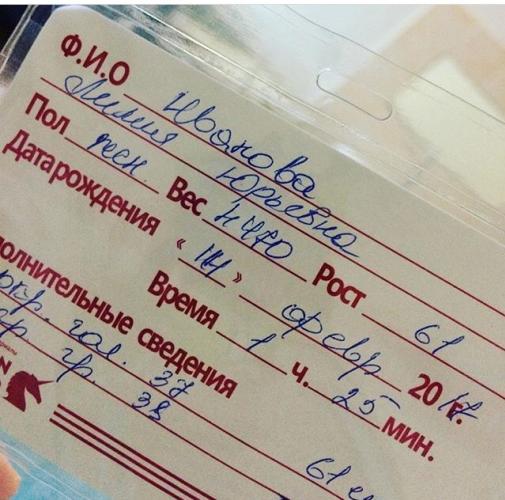 Ф.И.О Иванова
Лилия Юрьевна
Пол жен Вес 4470 Рост 61
Дата рождения «14» февр 2017 г.
Время 1 ч. 25 мин.
полнительные сведения
окр. гол. 37
гр. 38
61